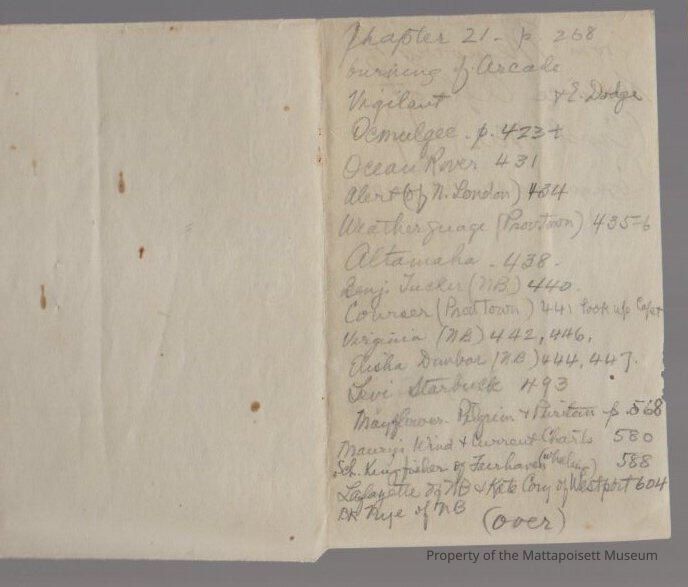 Chapter 21 - p. 268
burning of Arcade
Vigilant & E. Dodge
Ocmulgee - p. 423+
Ocean Rover 431
Alert (of N. London) 434
Weatherguage (Provtown) 435-6
Altamaha - 438.
Benj. Tucker (NB) 440.
Courser (Provtown) 441 look up Capt
Virginia (NB) 442, 446.
Elisha Dunbar (NB) 444, 447.
Levi Starbuck 493
Mayflower - Pilgrim & Puritan - p. 568
Maury's Wind & Current Charts 580
Sch. Kingfisher of Fairhaven (whaling) 588
Lafayette of NB & Kate Cory of Westport 604
Nye of NB
(over)
Property of the Mattapoisett Museum